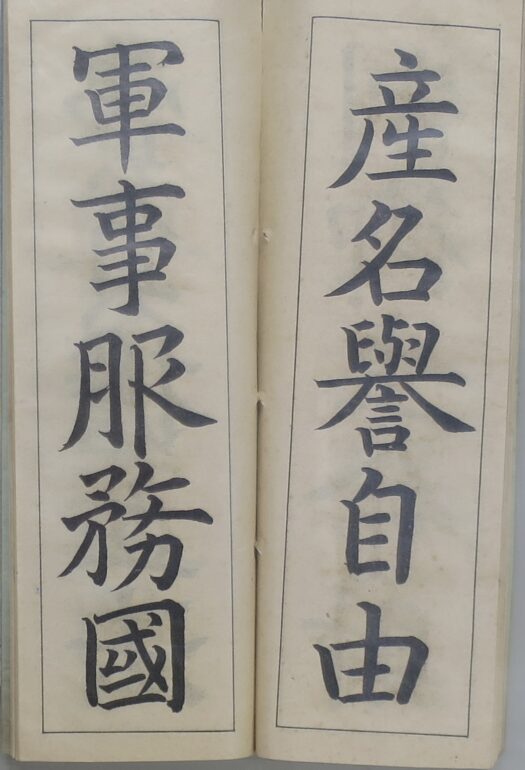 産名譽自由
軍事服務國